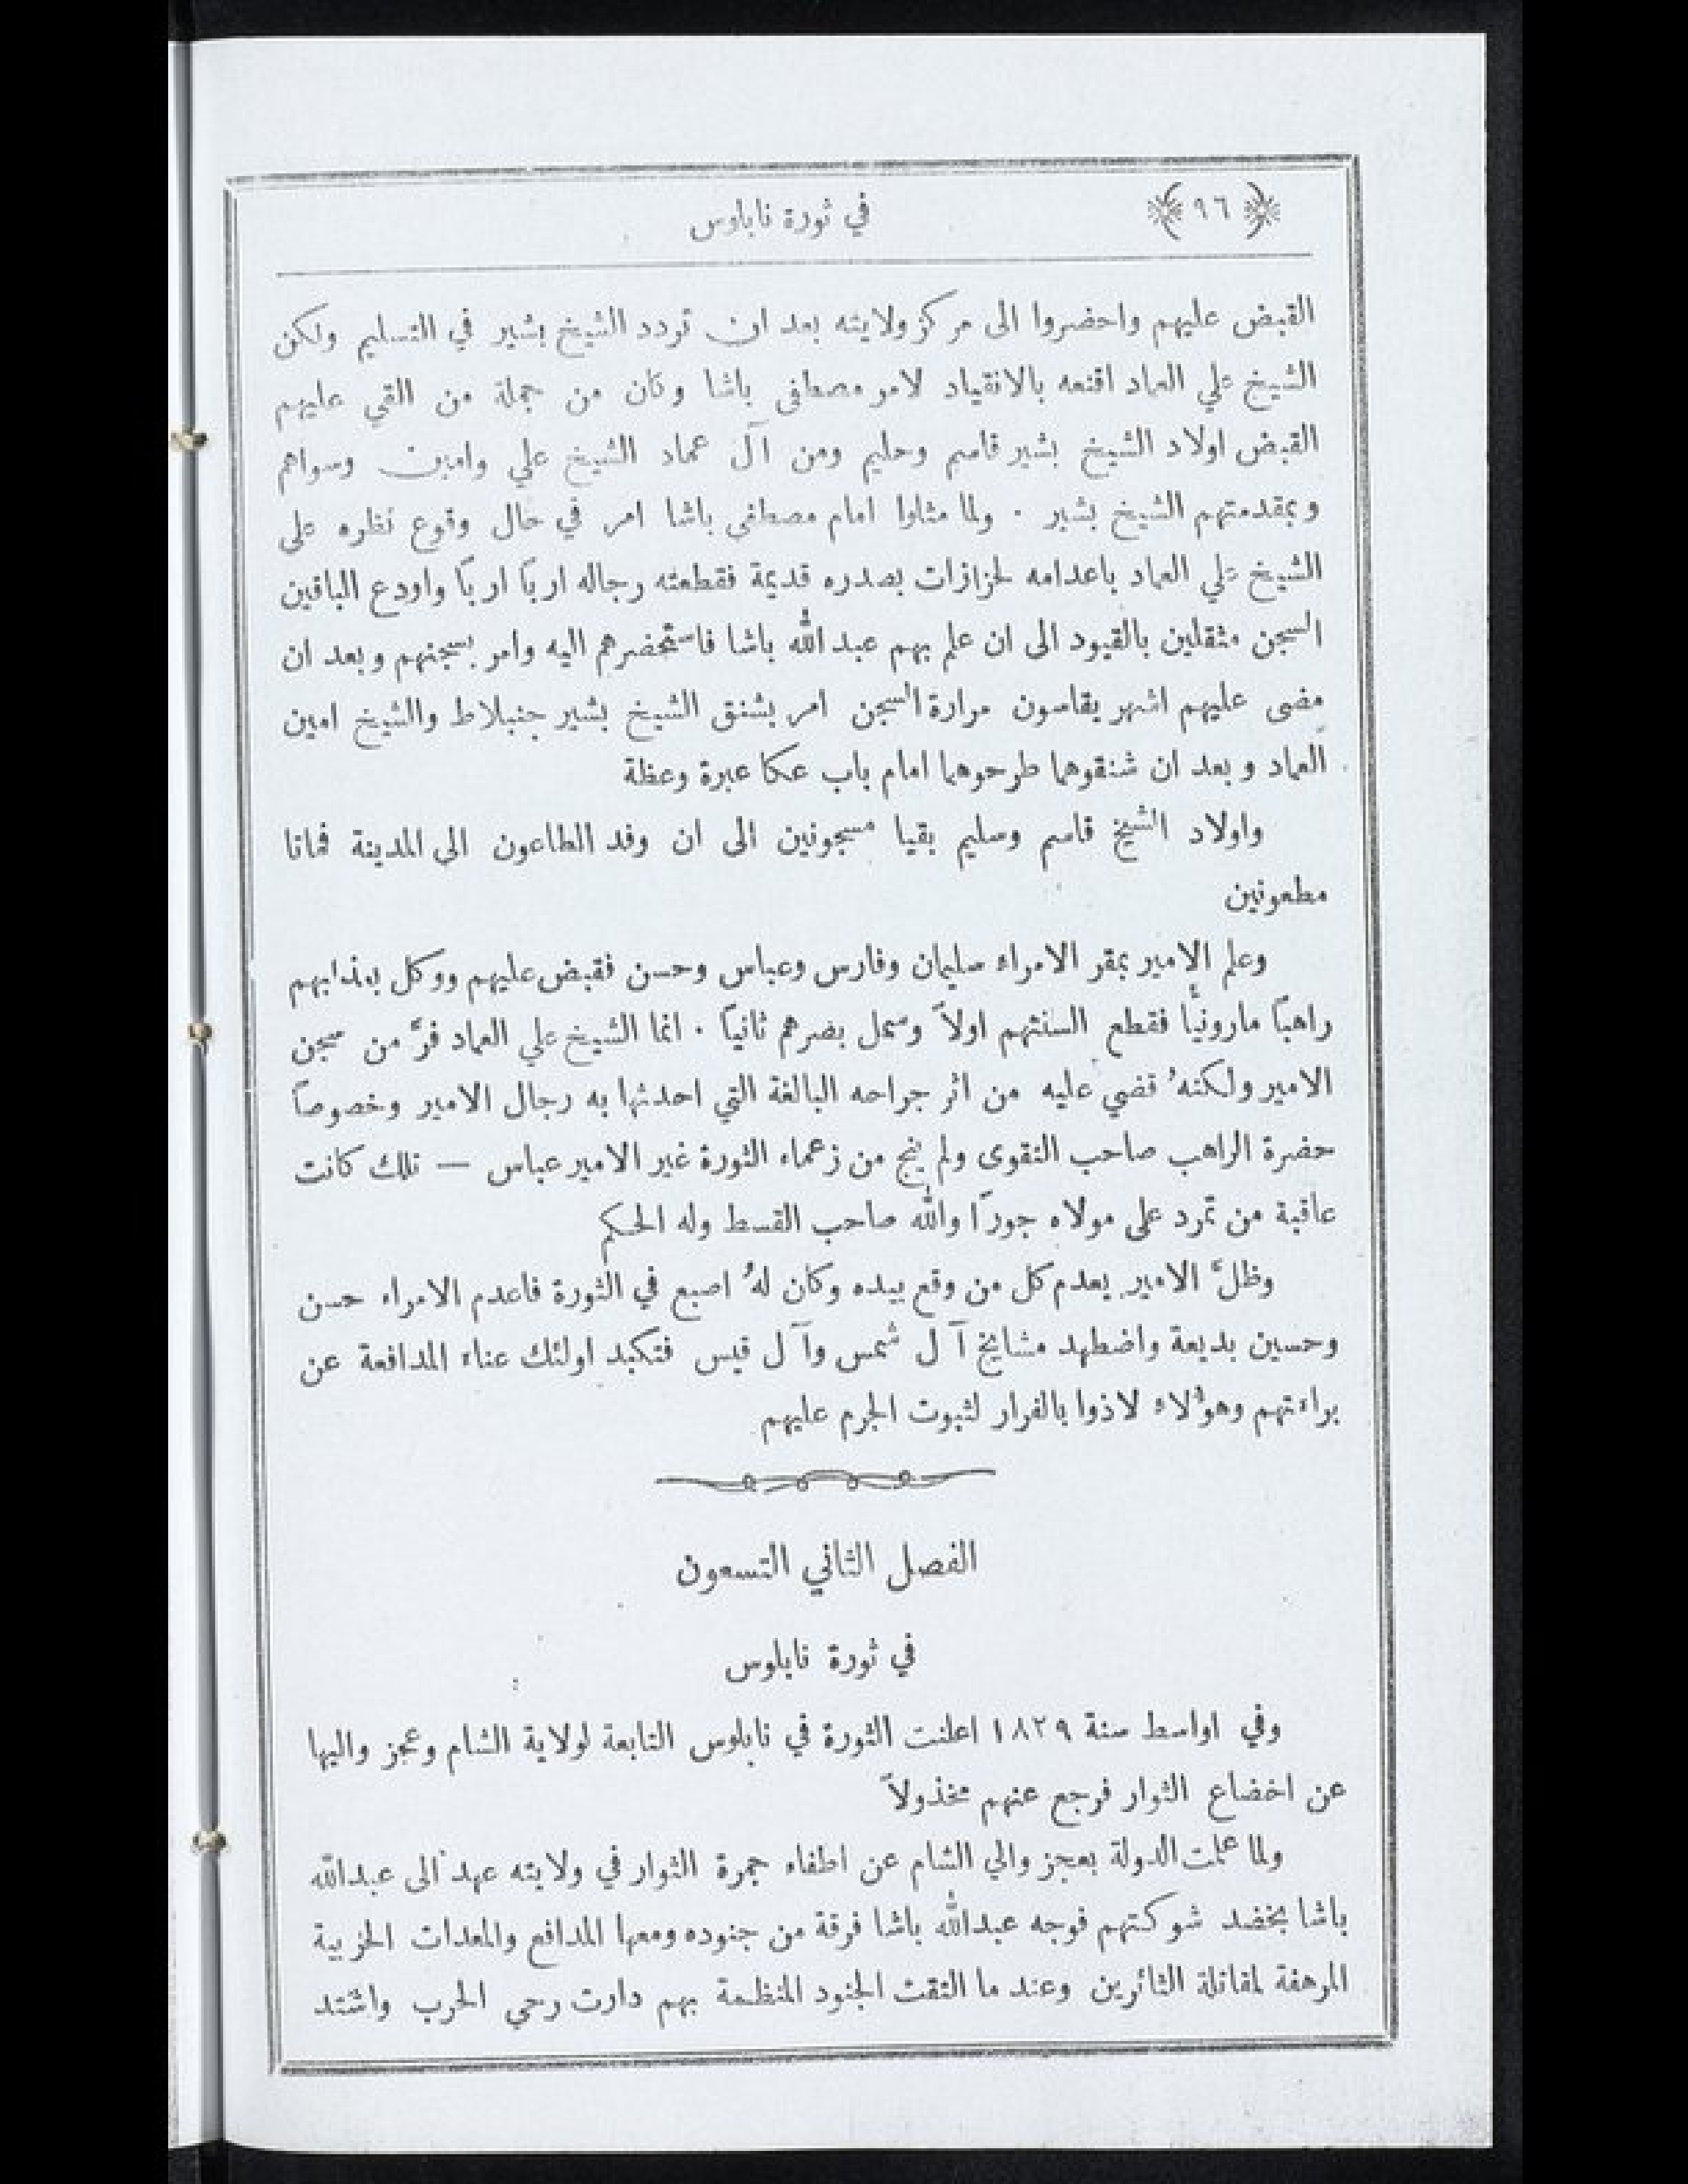 ﴿ ٩٦ ﴾
في ثورة نابلوس
القبض عليهم واحضروا الى مركز ولايته بعد ان تردد الشيخ بشير في التسليم ولكن
الشيخ علي العماد اقنعه بالانقياد لامر مصطفى باشا وكان من جملة من القي عليهم
القبض اولاد الشيخ بشير قاسم وحليم ومن آل عماد الشيخ علي وامين وسواهم
وبمقدمتهم الشيخ بشير . ولما مثلوا امام مصطفى باشا امر في حال وقوع نظره على
الشيخ علي العماد باعدامه لحزازات بصدره قديمة فقطعته رجاله ارباً ارباً واودع الباقين
السجن مثقلين بالقيود الى ان علم بهم عبد الله باشا فاستحضرهم اليه وامر بسجنهم وبعد ان
مضى عليهم اشهر يقاسون مرارة السجن امر بشنق الشيخ بشير جنبلاط والشيخ امين
العماد وبعد ان شنقوهما طرحوهما امام باب عكا عبرة وعظة
واولاد الشيخ قاسم وسليم بقيا مسجونين الى ان وفد الطاعون الى المدينة فماتا
مطعونين
وعلم الامير بمقر الامراء سليمان وفارس وعباس وحسن فقبض عليهم ووكل بعذابهم
راهباً مارونياً فقطع السنتهم اولاً وسمل بصرهم ثانياً . انما الشيخ علي العماد فرَّ من سجن
الامير ولكنهُ قضي عليه من اثر جراحه البالغة التي احدثها به رجال الامير وخصوصاً
حضرة الراهب صاحب التقوى ولم ينج من زعماء الثورة غير الامير عباس — تلك كانت
عاقبة من تمرد على مولاه جوراً والله صاحب القسط وله الحكم
وظلَّ الامير يعدم كل من وقع بيده وكان لهُ اصبع في الثورة فاعدم الامراء حسن
وحسين بديعة واضطهد مشايخ آل شمس وآل قيس فتكبد اولئك عناء المدافعة عن
براءتهم وهؤلاء لاذوا بالفرار لثبوت الجرم عليهم
الفصل الثاني التسعون
في ثورة نابلوس
وفي اواسط سنة ١٨٢٩ اعلنت الثورة في نابلوس التابعة لولاية الشام وعجز واليها
عن اخضاع الثوار فرجع عنهم مخذولاً
ولما علمت الدولة بعجز والي الشام عن اطفاء جمرة الثوار في ولايته عهد الى عبدالله
باشا بخضد شوكتهم فوجه عبدالله باشا فرقة من جنوده ومعها المدافع والمعدات الحربية
المرهفة لمقاتلة الثائرين وعند ما التقت الجنود المنظمة بهم دارت رحي الحرب واشتد